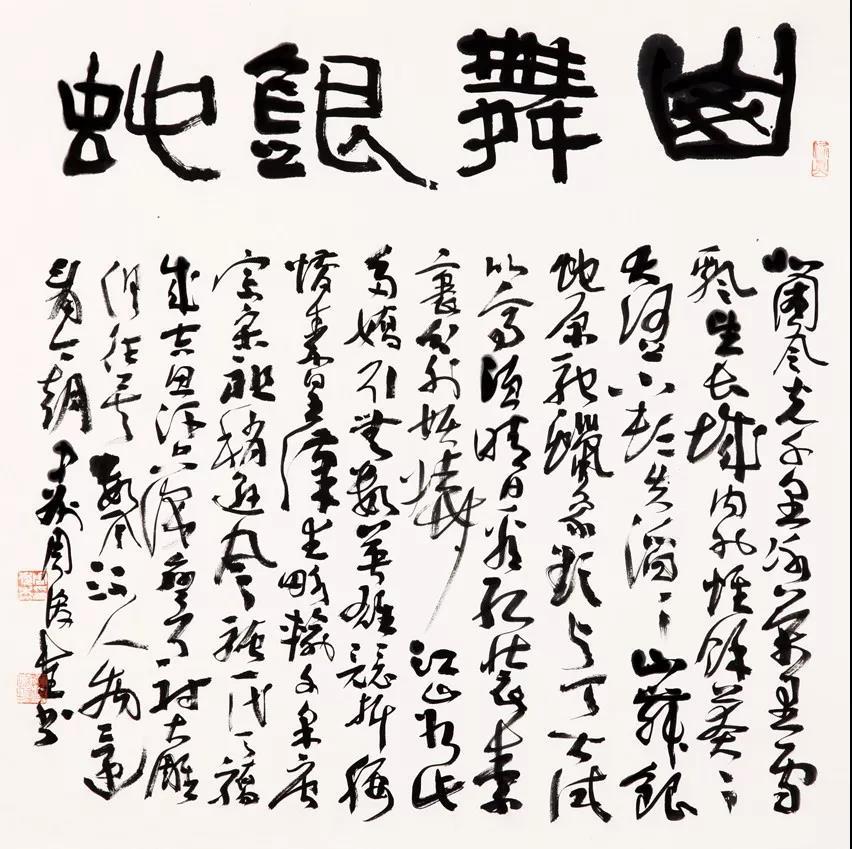 山舞銀蛇
北國風光千里冰萬里雪
飄望長城内外惟餘莽々
大河上下頓失滔々山舞銀
蛇原馳蠟象欲与天公试
比高須晴日看紅裝素
裹分外妖嬈江山如此
多嬌引無數英雄競折腰
惜秦皇漢武略輸文采唐
宗宋祖稍遜風騷一代天驕
成吉思汗只識彎弓射大雕
俱往矣數風流人物還
看今朝 中州周俊杰書